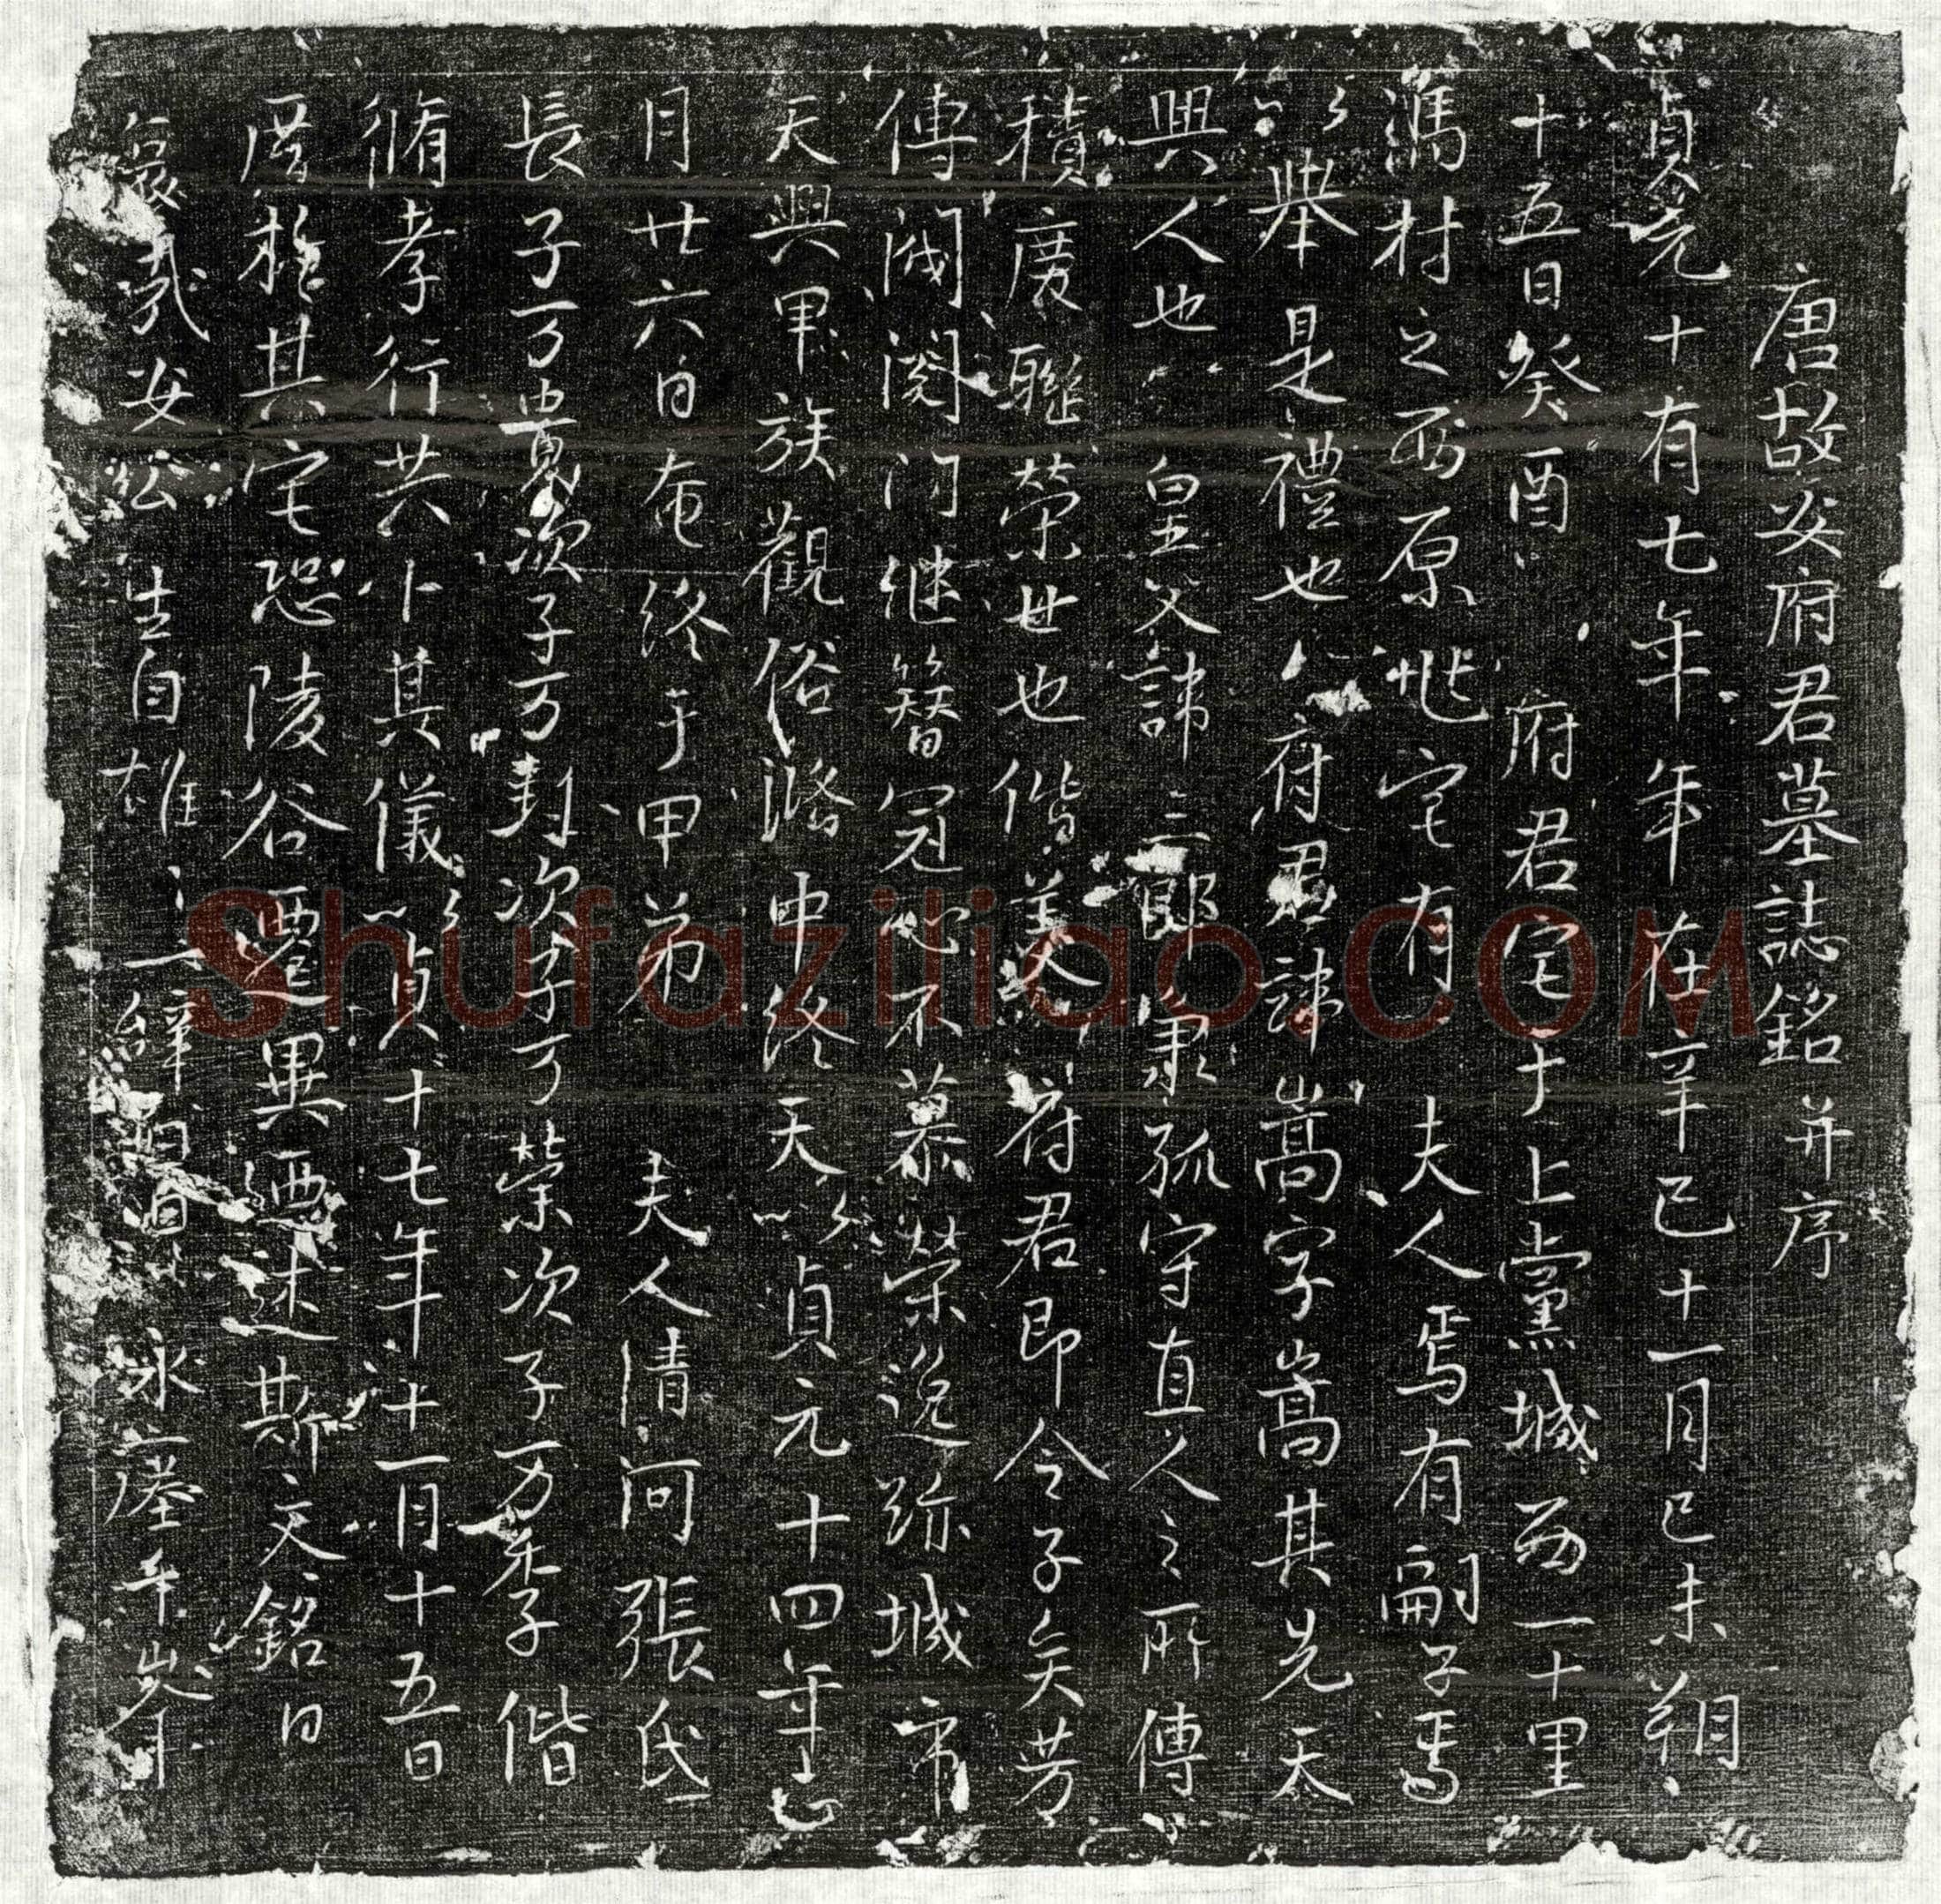 唐故安府君墓誌銘并序
貞元十有七年年在辛巳十一月己未朔
十五日癸酉府君宅于上黨城西一十里
馮村之西原地宅有夫人焉有嗣子焉
舉是禮也府君諱嵩字嵩其先太
興人也皇父諱三郎肅孤守直人之所傳
積慶聯榮世也偕美府君即令子矣芳
傳閥閱門継簪冠心不慕榮逸跡城市
天興甲族觀俗潞中終天貞元十四年七
月廿六日奄終于甲弟夫人清河張氏
長子万貴次子万封次子万榮次子万季子偕
脩孝行共卜其儀貞十七年十一月十五日
厝於其宅恐陵谷遷異迺述斯文銘曰
哀哉安公生自雄永座千歲
Shufaziliao.COM